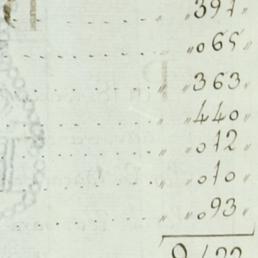 " 397.
" 065
" 363
" 440
" 012
" 010
" 093